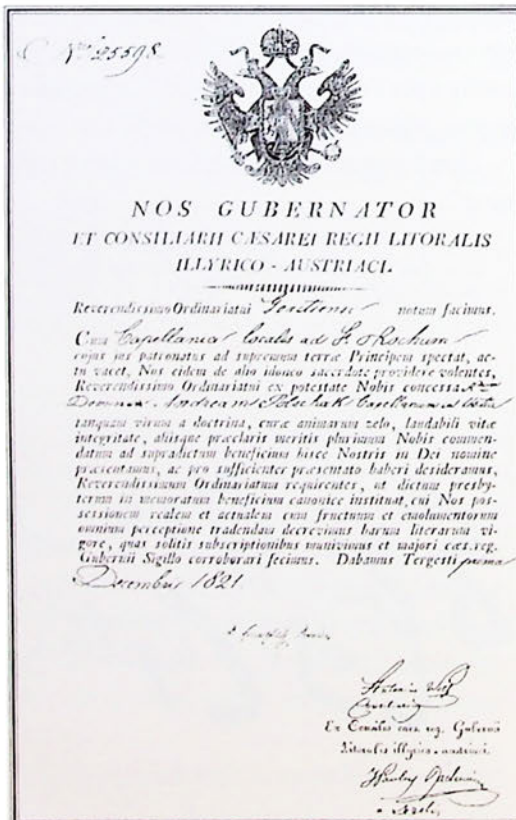 Nro 25598
NOS GUBERNATOR
ET CONSILIARII CÆSAREI REGII LITORALIS
ILLYRICO - AUSTRIACI.
Reverendissimo Ordinariatui notum facimus.
Cum Capellania localis ad S. Rochum
cujus jus patronatus ad supremum terræ Principem spectat, ac-
tu vacet, Nos eidem de alio idoneo sacerdote providere volentes,
Reverendissimo Ordinariatui ex potestate Nobis concessa
Dominum Andream Capellanum
tanquam virum a doctrina, curæ animarum zelo, laudabili vitæ
integritate, aliisque præclaris meritis plurimum Nobis commen-
datum ad supradictum beneficium hisce Nostris in Dei nomine
præsentamus, ac pro sufficienter præsentato haberi desideramus,
Reverendissimum Ordinariatum requirentes, ut dictum presby-
terum in memoratum beneficium canonice instituat, cui Nos pos-
sessionem realem et actualem cum fructuum et emolumentorum
omnium perceptione tradendam decrevimus harum literarum vi-
gore, quas solitis subscriptionibus munivimus et majori cæs. reg.
Gubernii Sigillo corroborari fecimus. Dabamus Tergesti prima
Decembris 1821
Ex Consilio cæs. reg. Gubernii